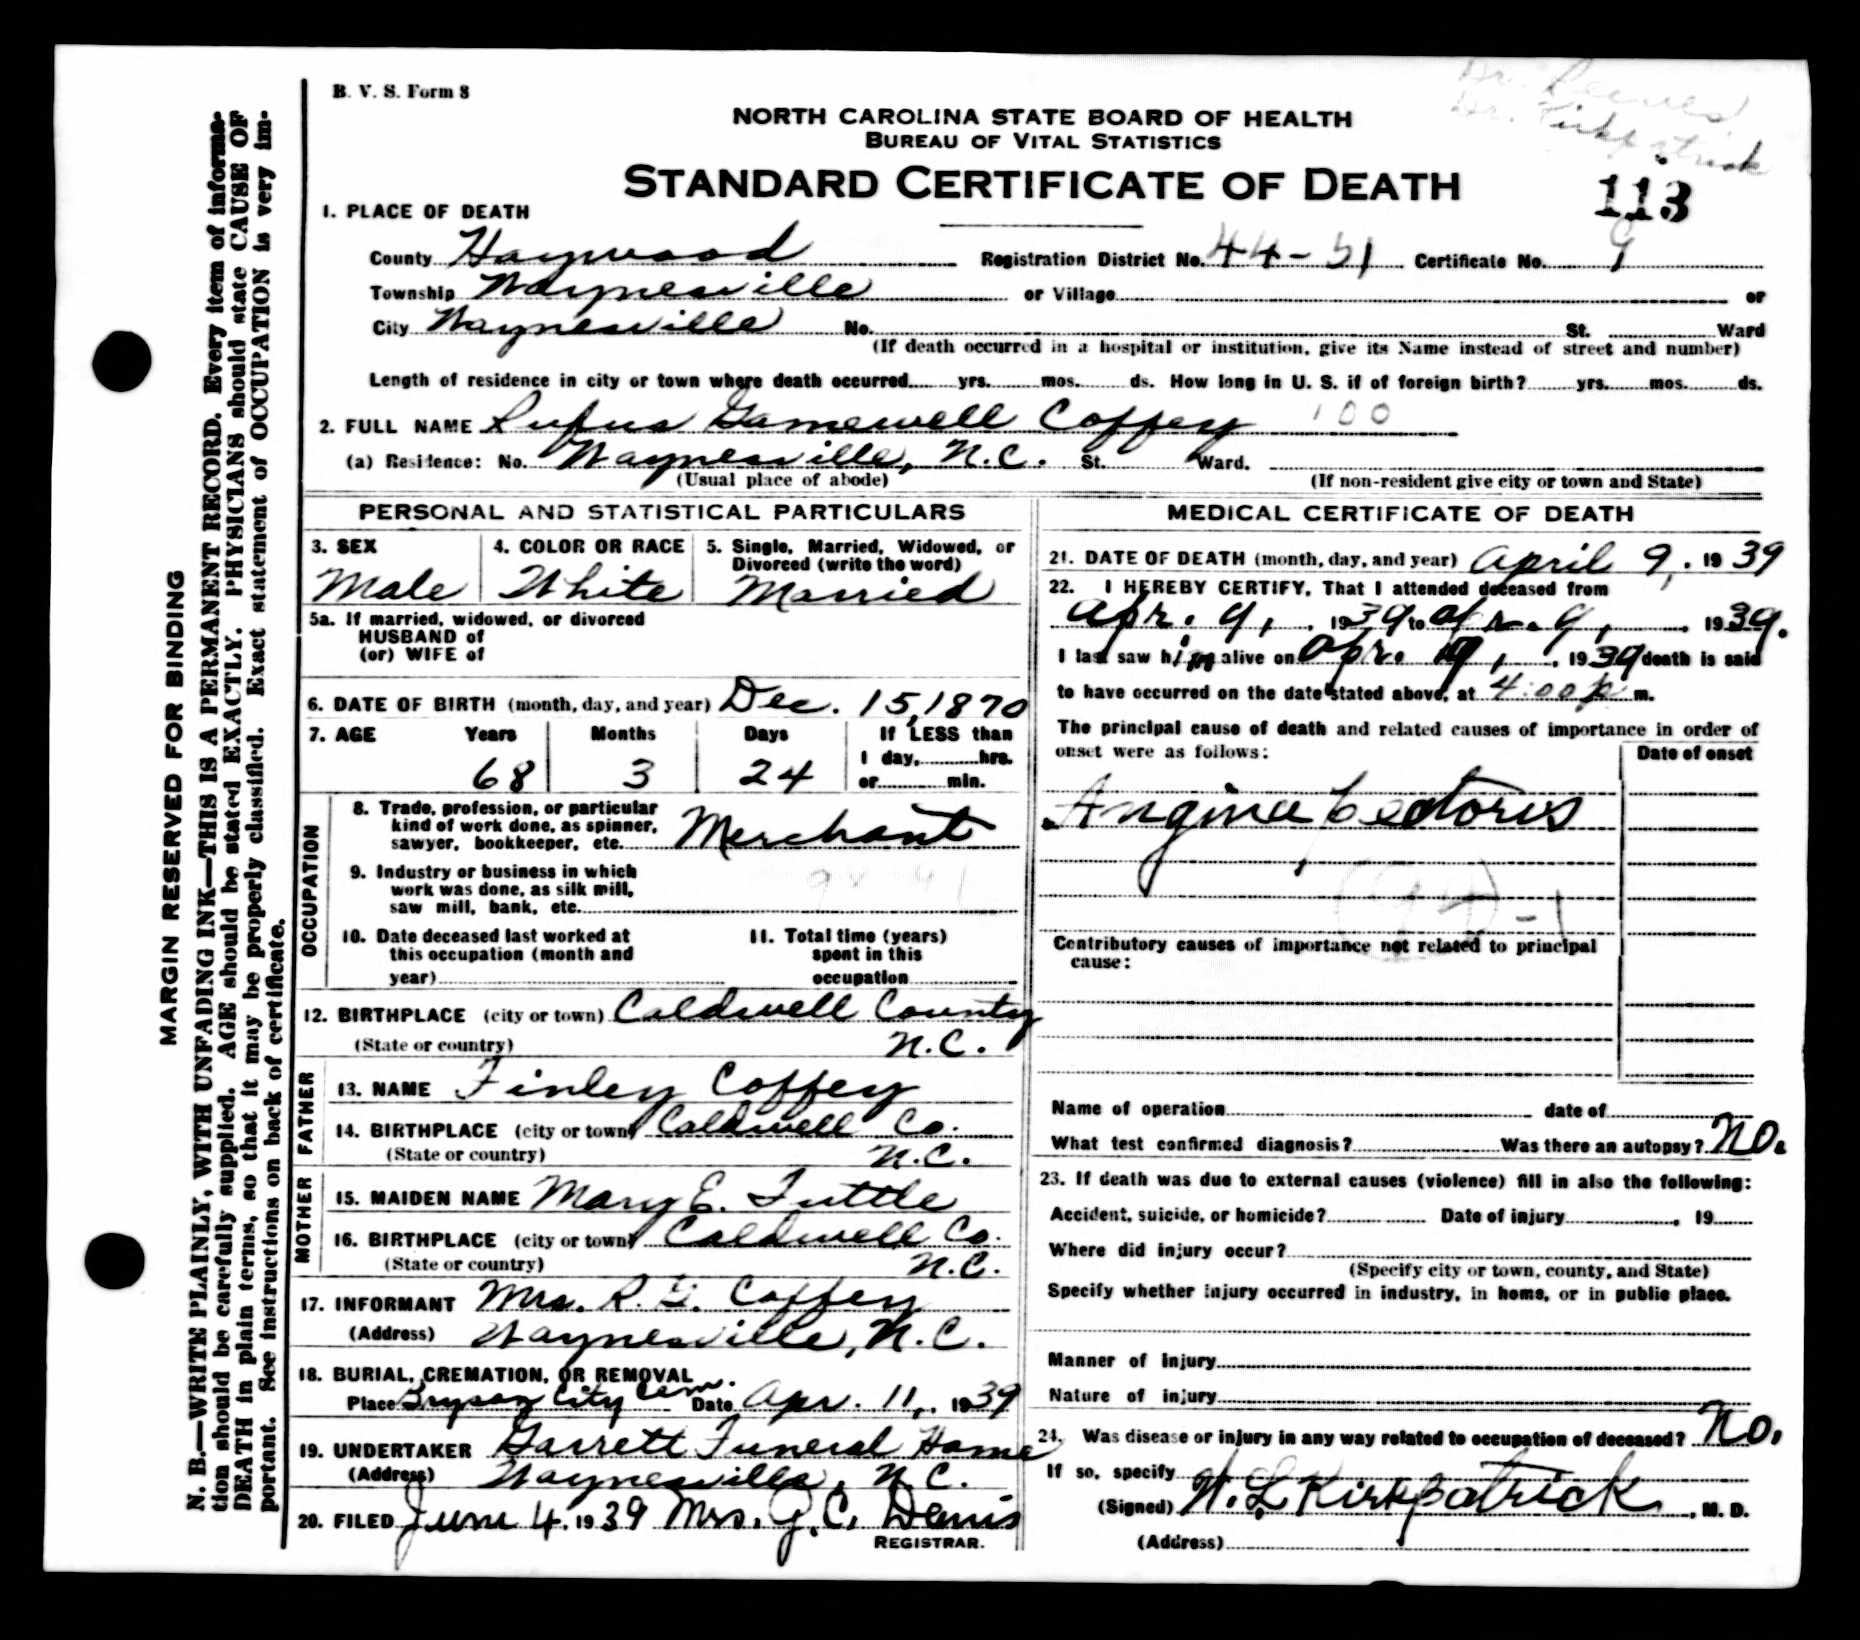 B. V. S. Form 8
Dr. Reeves
Dr. Kirkpatrick
NORTH CAROLINA STATE BOARD OF HEALTH
BUREAU OF VITAL STATISTICS
STANDARD CERTIFICATE OF DEATH
113
1. PLACE OF DEATH
County Haywood Registration District No. 44-51 Certificate No. 9
Township Waynesville or Village or
City Waynesville No. St. Ward
(If death occurred in a hospital or institution, give its Name instead of street and number)
Length of residence in city or town where death occurred yrs. mos. ds. How long in U. S. if of foreign birth? yrs. mos. ds.
2. FULL NAME Rufus Gamewell Coffey 100
(a) Residence: No. Waynesville, N.C. St. Ward.
(Usual place of abode) (If non-resident give city or town and State)
PERSONAL AND STATISTICAL PARTICULARS
3. SEX 4. COLOR OR RACE 5. Single, Married, Widowed, or
Divorced (write the word)
Male White Married
5a. If married, widowed, or divorced
HUSBAND of
(or) WIFE of
6. DATE OF BIRTH (month, day, and year) Dec. 15, 1870
7. AGE Years Months Days If LESS than
1 day, hrs.
68 3 24 or min.
OCCUPATION
8. Trade, profession, or particular
kind of work done, as spinner,
sawyer, bookkeeper, etc. Merchant
9. Industry or business in which
work was done, as silk mill,
saw mill, bank, etc.
10. Date deceased last worked at
this occupation (month and
year)
11. Total time (years)
spent in this
occupation
12. BIRTHPLACE (city or town) Caldwell County
(State or country) N.C.
FATHER
13. NAME Finley Coffey
14. BIRTHPLACE (city or town) Caldwell Co.
(State or country) N.C.
MOTHER
15. MAIDEN NAME Mary E. Tuttle
16. BIRTHPLACE (city or town) Caldwell Co.
(State or country) N.C.
17. INFORMANT Mrs. R. G. Coffey
(Address) Waynesville, N.C.
18. BURIAL, CREMATION, OR REMOVAL
Place Bryson City Cem. Date Apr. 11, 1939
19. UNDERTAKER Garrett Funeral Home
(Address) Waynesville, N.C.
20. FILED June 4, 1939 Mrs. G. C. Davis
REGISTRAR.
MEDICAL CERTIFICATE OF DEATH
21. DATE OF DEATH (month, day, and year) April 9, 1939
22. I HEREBY CERTIFY, That I attended deceased from
Apr. 9, 1939 to Apr. 9, 1939.
I last saw him alive on Apr. 9, 1939 death is said
to have occurred on the date stated above, at 4:00 p m.
The principal cause of death and related causes of importance in order of
onset were as follows: Date of onset
Angina pectoris
94-1
Contributory causes of importance not related to principal
cause:
Name of operation date of
What test confirmed diagnosis? Was there an autopsy? No.
23. If death was due to external causes (violence) fill in also the following:
Accident, suicide, or homicide? Date of injury , 19
Where did injury occur?
(Specify city or town, county, and State)
Specify whether injury occurred in industry, in home, or in public place.
Manner of Injury
Nature of injury
24. Was disease or injury in any way related to occupation of deceased? No.
If so, specify
(Signed) W. L. Kirkpatrick, M. D.
(Address)
MARGIN RESERVED FOR BINDING
N. B.—WRITE PLAINLY, WITH UNFADING INK—THIS IS A PERMANENT RECORD. Every item of informa-
tion should be carefully supplied. AGE should be stated EXACTLY. PHYSICIANS should state CAUSE OF
DEATH in plain terms, so that it may be properly classified. Exact statement of OCCUPATION is very im-
portant. See instructions on back of certificate.